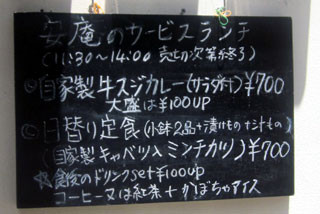 安庵のサービスランチ
(11:30~14:00 売切次第終了)
自家製牛スジカレー(サラダ付)¥700
大盛は¥100UP
日替り定食(小鉢2品+漬けもの+汁もの)
(自家製キャベツ入ミンチカツ)¥700
食後のドリンクset¥100UP
コーヒー又は紅茶+かぼちゃアイス